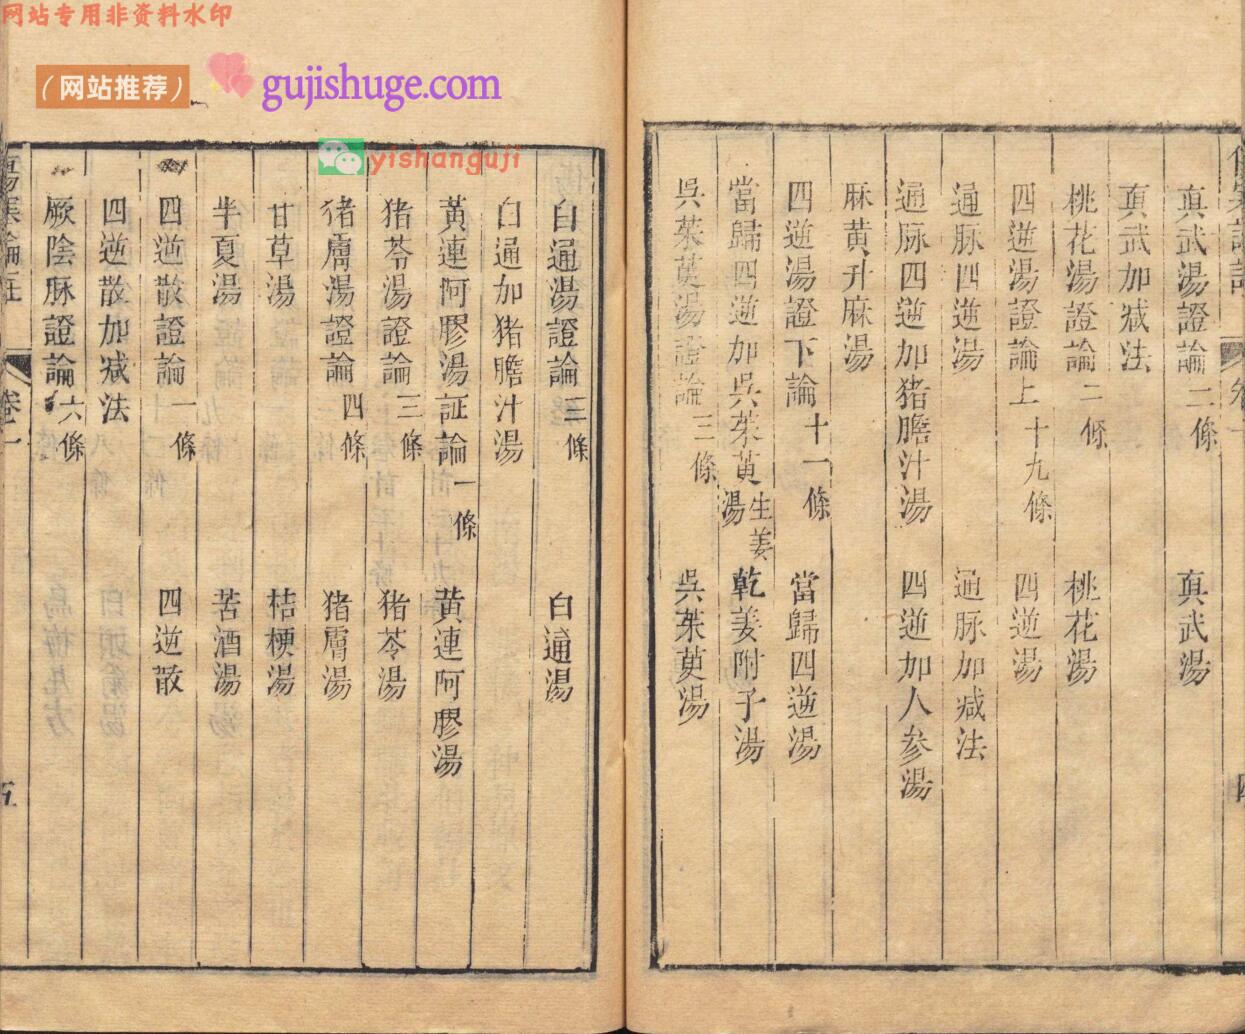 网站专用非资料水印
（网站推荐）
gujishuge.com
yishanguji
真武湯證論二條　真武湯
真武加減法
桃花湯證論二條　桃花湯
四逆湯證論上十九條　四逆湯
通脉四逆湯　通脉加減法
通脉四逆加猪膽汁湯　四逆加人参湯
麻黄升麻湯
四逆湯證下論十一條　當歸四逆湯
當歸四逆加吳茱萸生姜湯　乾姜附子湯
吳茱萸湯證論三條　吳茱萸湯
四
白通湯證論三條　白通湯
白通加猪膽汁湯
黃連阿膠湯証論一條　黃連阿膠湯
猪苓湯證論三條　猪苓湯
猪膚湯證論四條　猪膚湯
甘草湯　桔梗湯
半夏湯　苦酒湯
四逆散證論一條　四逆散
四逆散加减法
厥陰脉證論六條
傷寒論註
卷一
五